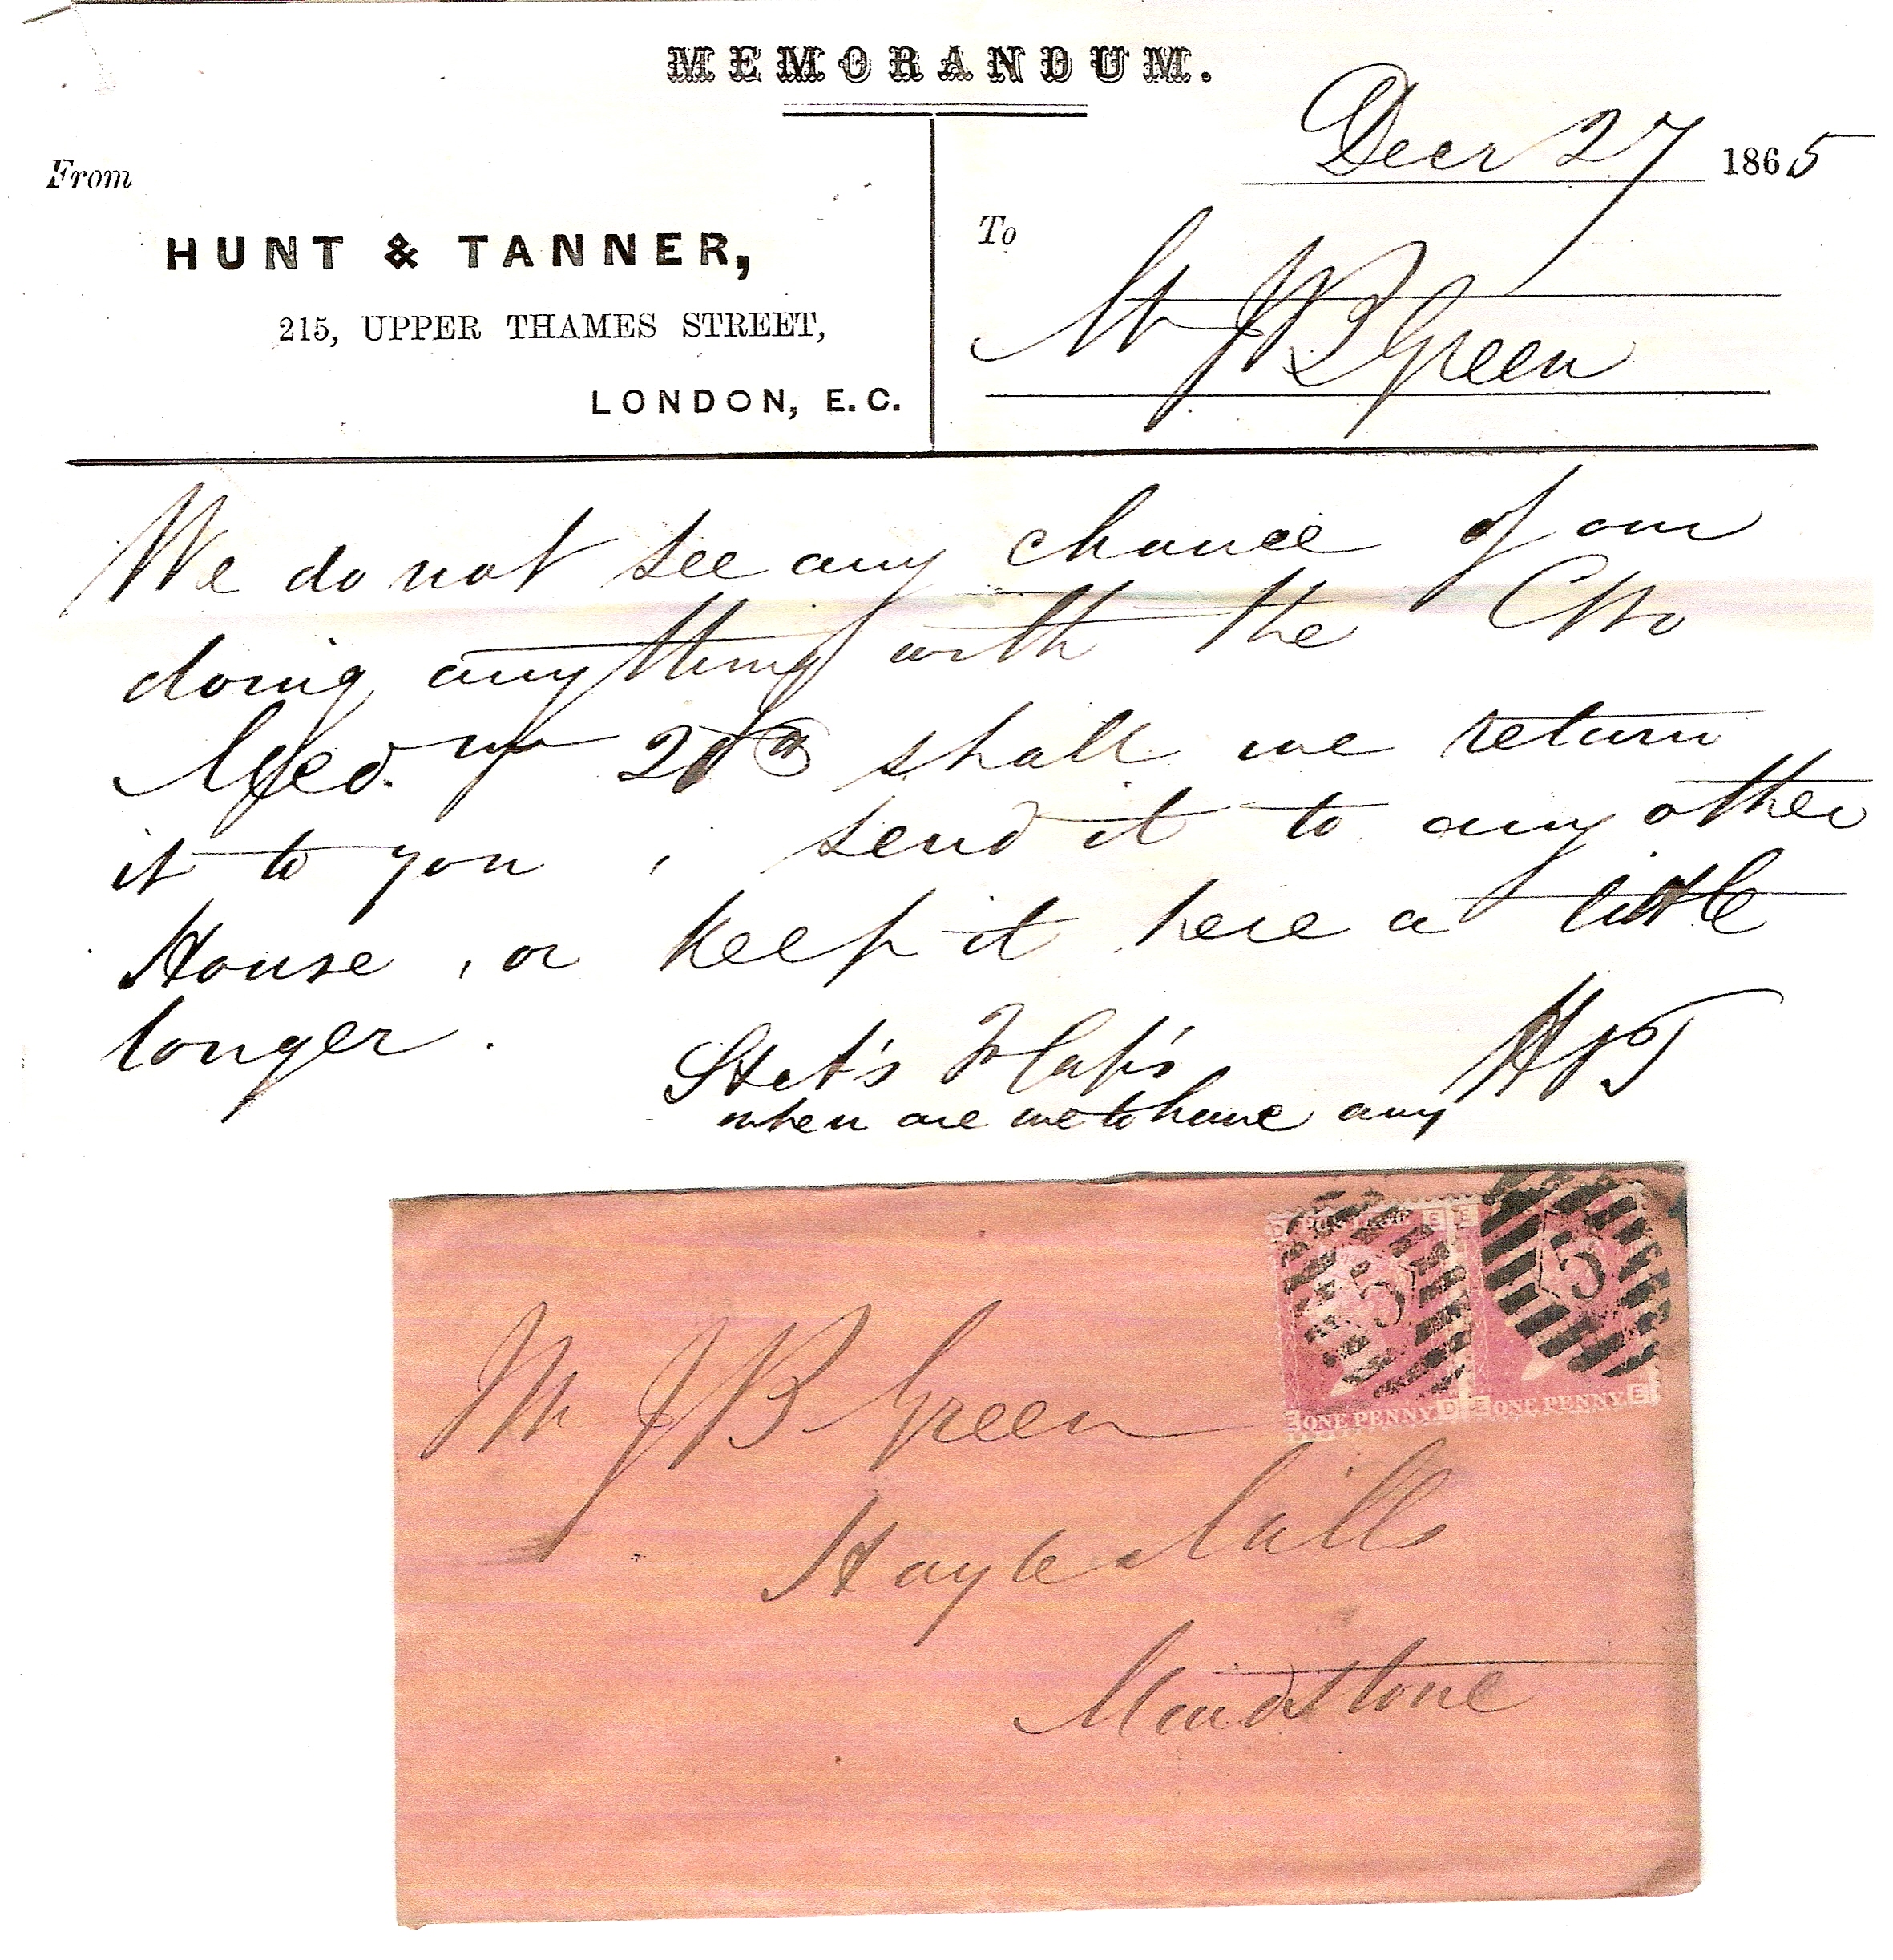 MEMORANDUM.
Decr 27 1865
From
HUNT & TANNER,
215, UPPER THAMES STREET,
LONDON, E.C.
To
Mr J B Green
We do not see any chance of our
doing anything with the
shall we return
it to you, send it to any other
House, or keep it here a little
longer.
H & T
when are we to have any
D E
E E
5
5
E ONE PENNY D
E ONE PENNY E
Mr J B Green
Hayle Mills
Maidstone